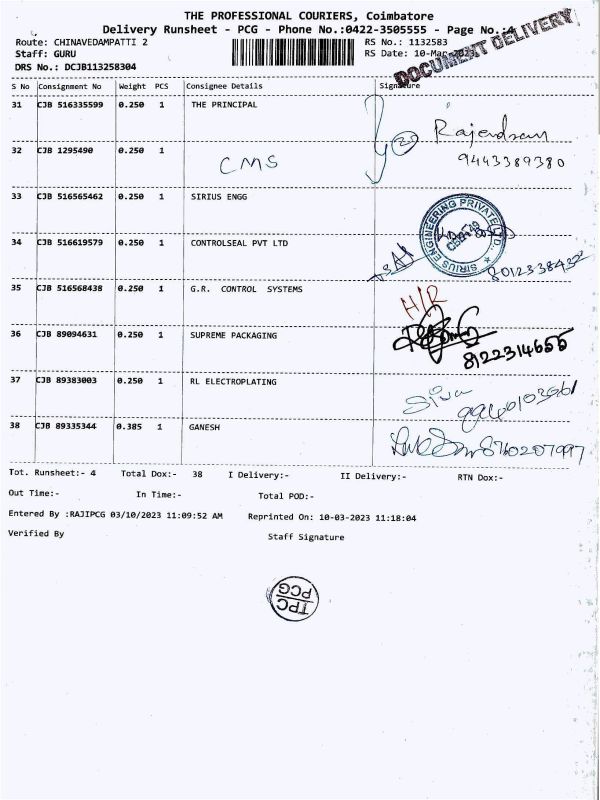 THE PROFESSIONAL COURIERS, Coimbatore
Delivery Runsheet - PCG - Phone No.:0422-3505555 - Page No.:4
Route: CHINAVEDAMPATTI 2
RS No.: 1132583
Staff: GURU
RS Date: 10-Mar-2023
DOCUMENT DELIVERY
DRS No.: DCJB113258304
S No Consignment No Weight PCS Consignee Details Signature
31 CJB 516335599 0.250 1 THE PRINCIPAL
Rajendran
9443389380
32 CJB 1295490 0.250 1
CMS
33 CJB 516565462 0.250 1 SIRIUS ENGG
SIRIUS ENGINEERING PRIVATE LTD.
34 CJB 516619579 0.250 1 CONTROLSEAL PVT LTD
35 CJB 516568438 0.250 1 G.R. CONTROL SYSTEMS
H/R
36 CJB 89094631 0.250 1 SUPREME PACKAGING
8122314655
37 CJB 89383003 0.250 1 RL ELECTROPLATING
Siva
38 CJB 89335344 0.385 1 GANESH
8760207997
Tot. Runsheet:- 4 Total Dox:- 38 I Delivery:- II Delivery:- RTN Dox:-
Out Time:- In Time:- Total POD:-
Entered By :RAJIPCG 03/10/2023 11:09:52 AM Reprinted On: 10-03-2023 11:18:04
Verified By Staff Signature
TPC
PCG